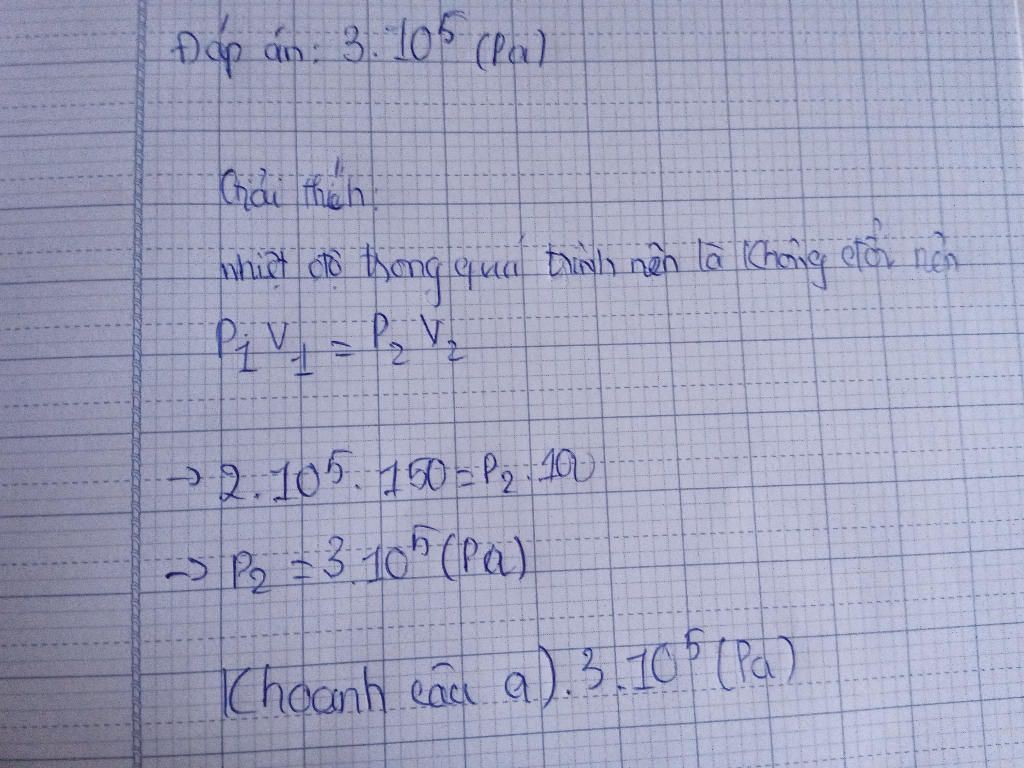 Đáp án: 3.10⁵ (Pa)
Giải thích:
nhiệt độ trong quá trình nén là không đổi nên
P₁V₁ = P₂V₂
→ 2.10⁵.150 = P₂.100
→ P₂ = 3.10⁵ (Pa)
Khoanh câu a). 3.10⁵ (Pa)